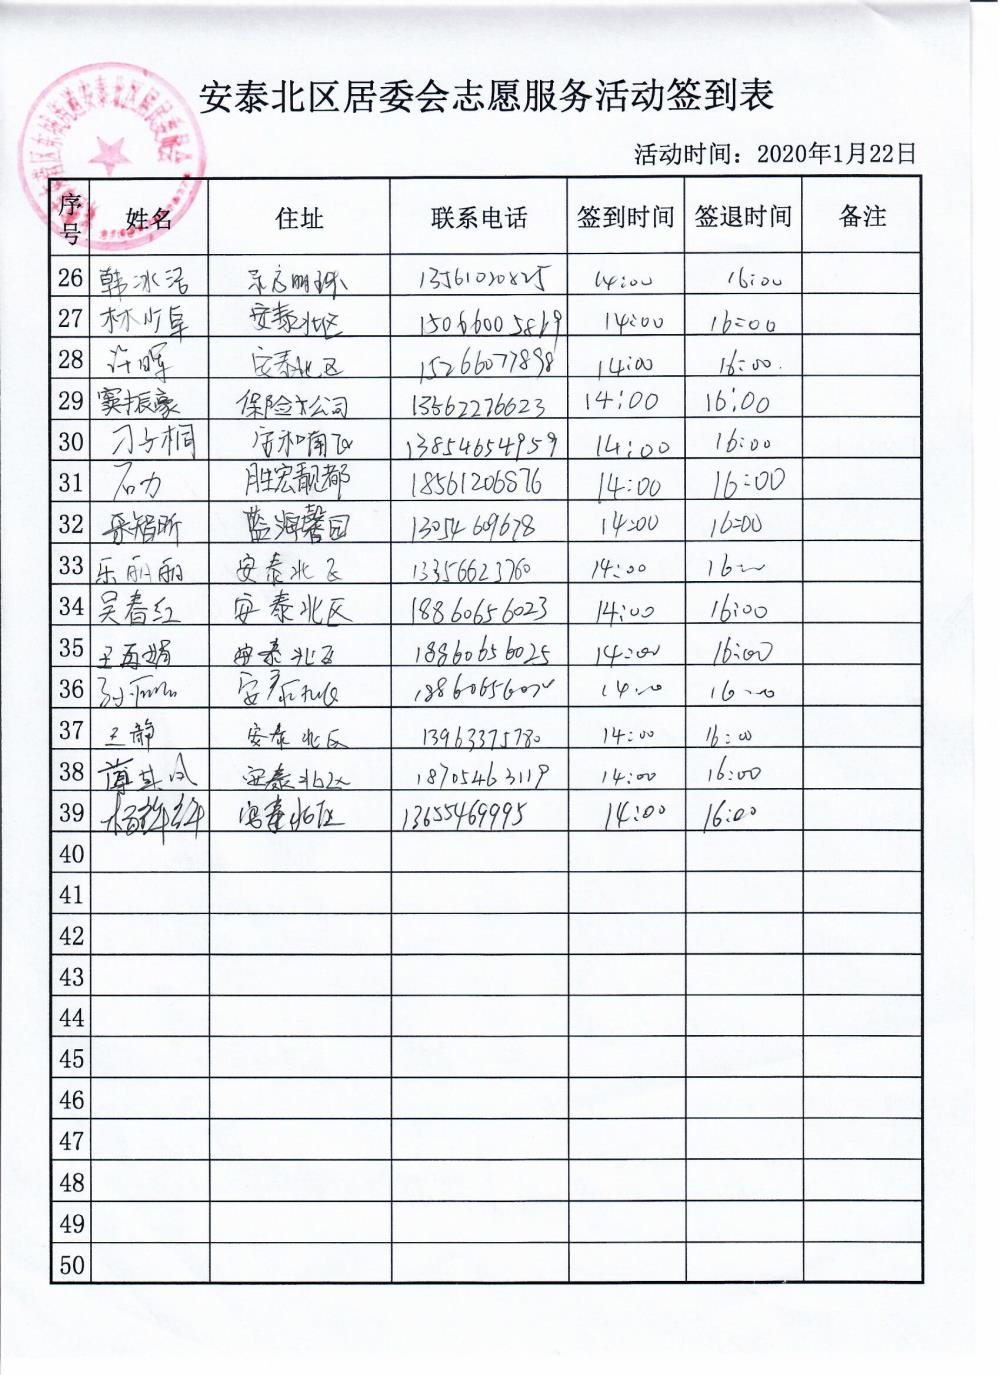 安泰北区居委会志愿服务活动签到表
活动时间：2020年1月22日
序号 姓名 住址 联系电话 签到时间 签退时间 备注
26 韩冰洁 明珠 13561030825 14:00 16:00
27 林少阜 安泰北区 15066005869 14:00 16:00
28 许晖 安泰北区 15266077898 14:00 16:00.
29 窦振豪 保险公司 13562276623 14:00 16:00
30 刁桐 安和南区 13854654959 14:00 16:00
31 石力 胜宏靓都 18561206876 14:00 16:00
32 智昕 蓝海馨园 13054609678 14:00 16:00
33 乐丽丽 安泰北区 13356623760 14:00 16
34 吴春红 安泰北区 18860656023 14:00 16:00
35 王娟 安泰北区 18860656025 14:00 16:00
36 安泰北区 14:00 16:00
37 王静 安泰北区 13963375780 14:00 16:00
38 安泰北区 18705463119 14:00 16:00
39 杨 安泰北区 13655469995 14:00 16:00
40
41
42
43
44
45
46
47
48
49
50